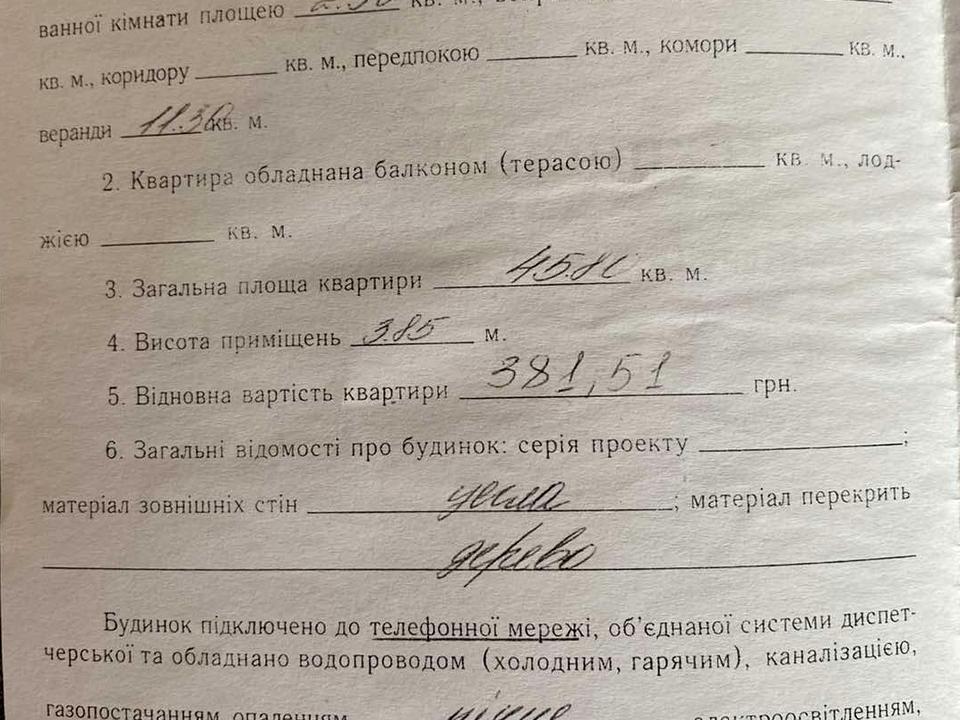 ванної кімнати площею кв. м.,
кв. м., коридору ______ кв. м., передпокою ______ кв. м., комори ______ кв. м.,
веранди 11.30 кв. м.
2. Квартира обладнана балконом (терасою) ______ кв. м., лод-
жією ______ кв. м.
3. Загальна площа квартири 45.80 кв. м.
4. Висота приміщень 3.85 м.
5. Відновна вартість квартири 381,51 грн.
6. Загальні відомості про будинок: серія проекту ______;
матеріал зовнішніх стін цегла; матеріал перекрить
дерево
Будинок підключено до телефонної мережі, об'єднаної системи диспет-
черської та обладнано водопроводом (холодним, гарячим), каналізацією,
газопостачанням, опаленням електроосвітленням,